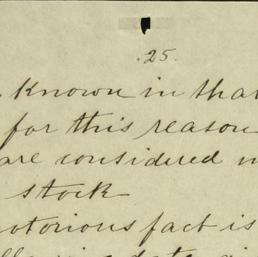 .25.
known in that
for this reason
are considered
stock
notorious fact is